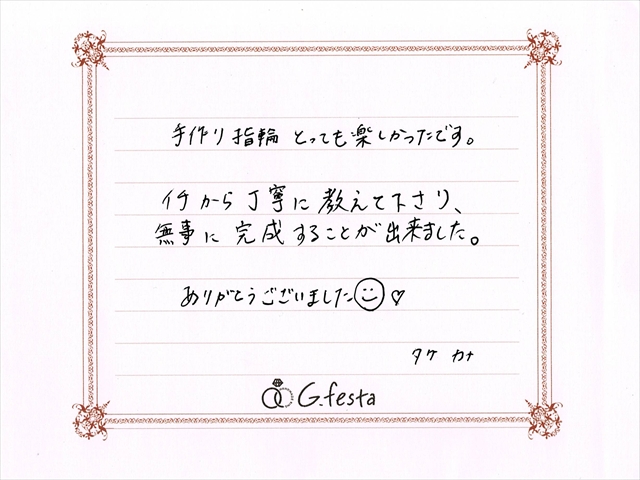 手作り指輪 とっても楽しかったです。
イチから丁寧に教えて下さり、
無事に完成することが出来ました。
ありがとうございました
タケ カナ
G.festa